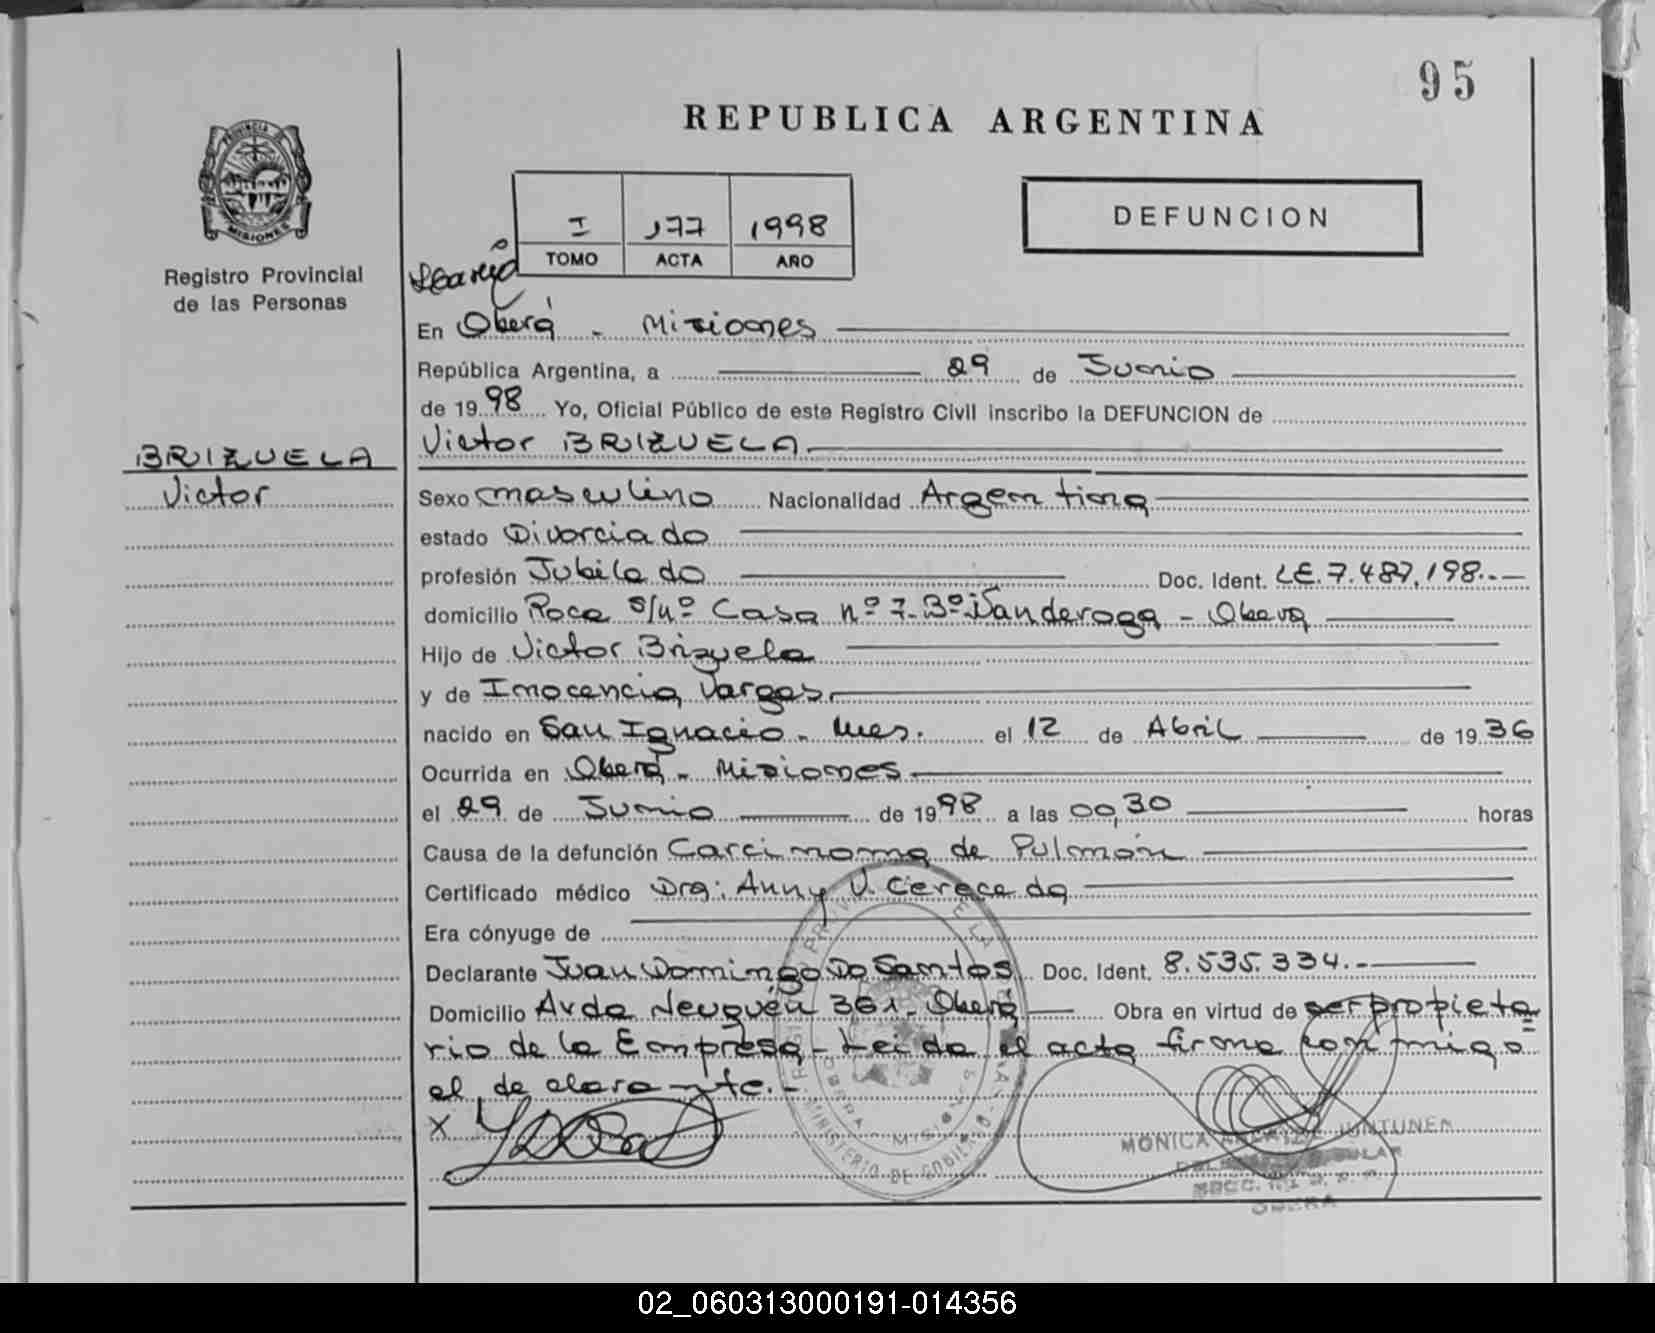 95
REPUBLICA ARGENTINA
PROVINCIA DE
MISIONES
Registro Provincial
de las Personas
I 177 1998
TOMO ACTA AÑO
DEFUNCION
En Oberá - Misiones
República Argentina, a 29 de Junio
de 1998 Yo, Oficial Público de este Registro Civil inscribo la DEFUNCION de
Victor BRIZUELA
BRIZUELA
Victor
Sexo masculino Nacionalidad Argentina
estado Divorciado
profesión Jubilado Doc. Ident. LE. 7.487.198.-
domicilio Roca s/nº Casa nº 7- Bº Vanderoga - Oberá
Hijo de Victor Brizuela
y de Inocencia Vargas.
nacido en San Ignacio - Mnes. el 12 de Abril de 1936
Ocurrida en Oberá - Misiones
el 29 de Junio de 1998 a las 00,30 horas
Causa de la defunción Carcinoma de Pulmón
Certificado médico Dra: Anny V. Cereceda
Era cónyuge de
Declarante Juan Domingo Do Santos Doc. Ident. 8.535.334.-
Domicilio Avda Neuquén 361 - Oberá Obra en virtud de ser propieta
rio de la Empresa - Leida el acta firma conmigo
el declarante.-
X
MINISTERIO DE GOBIERNO
OBERA - MISIONES
MONICA JUNTUNEN
OBERA
02_060313000191-014356